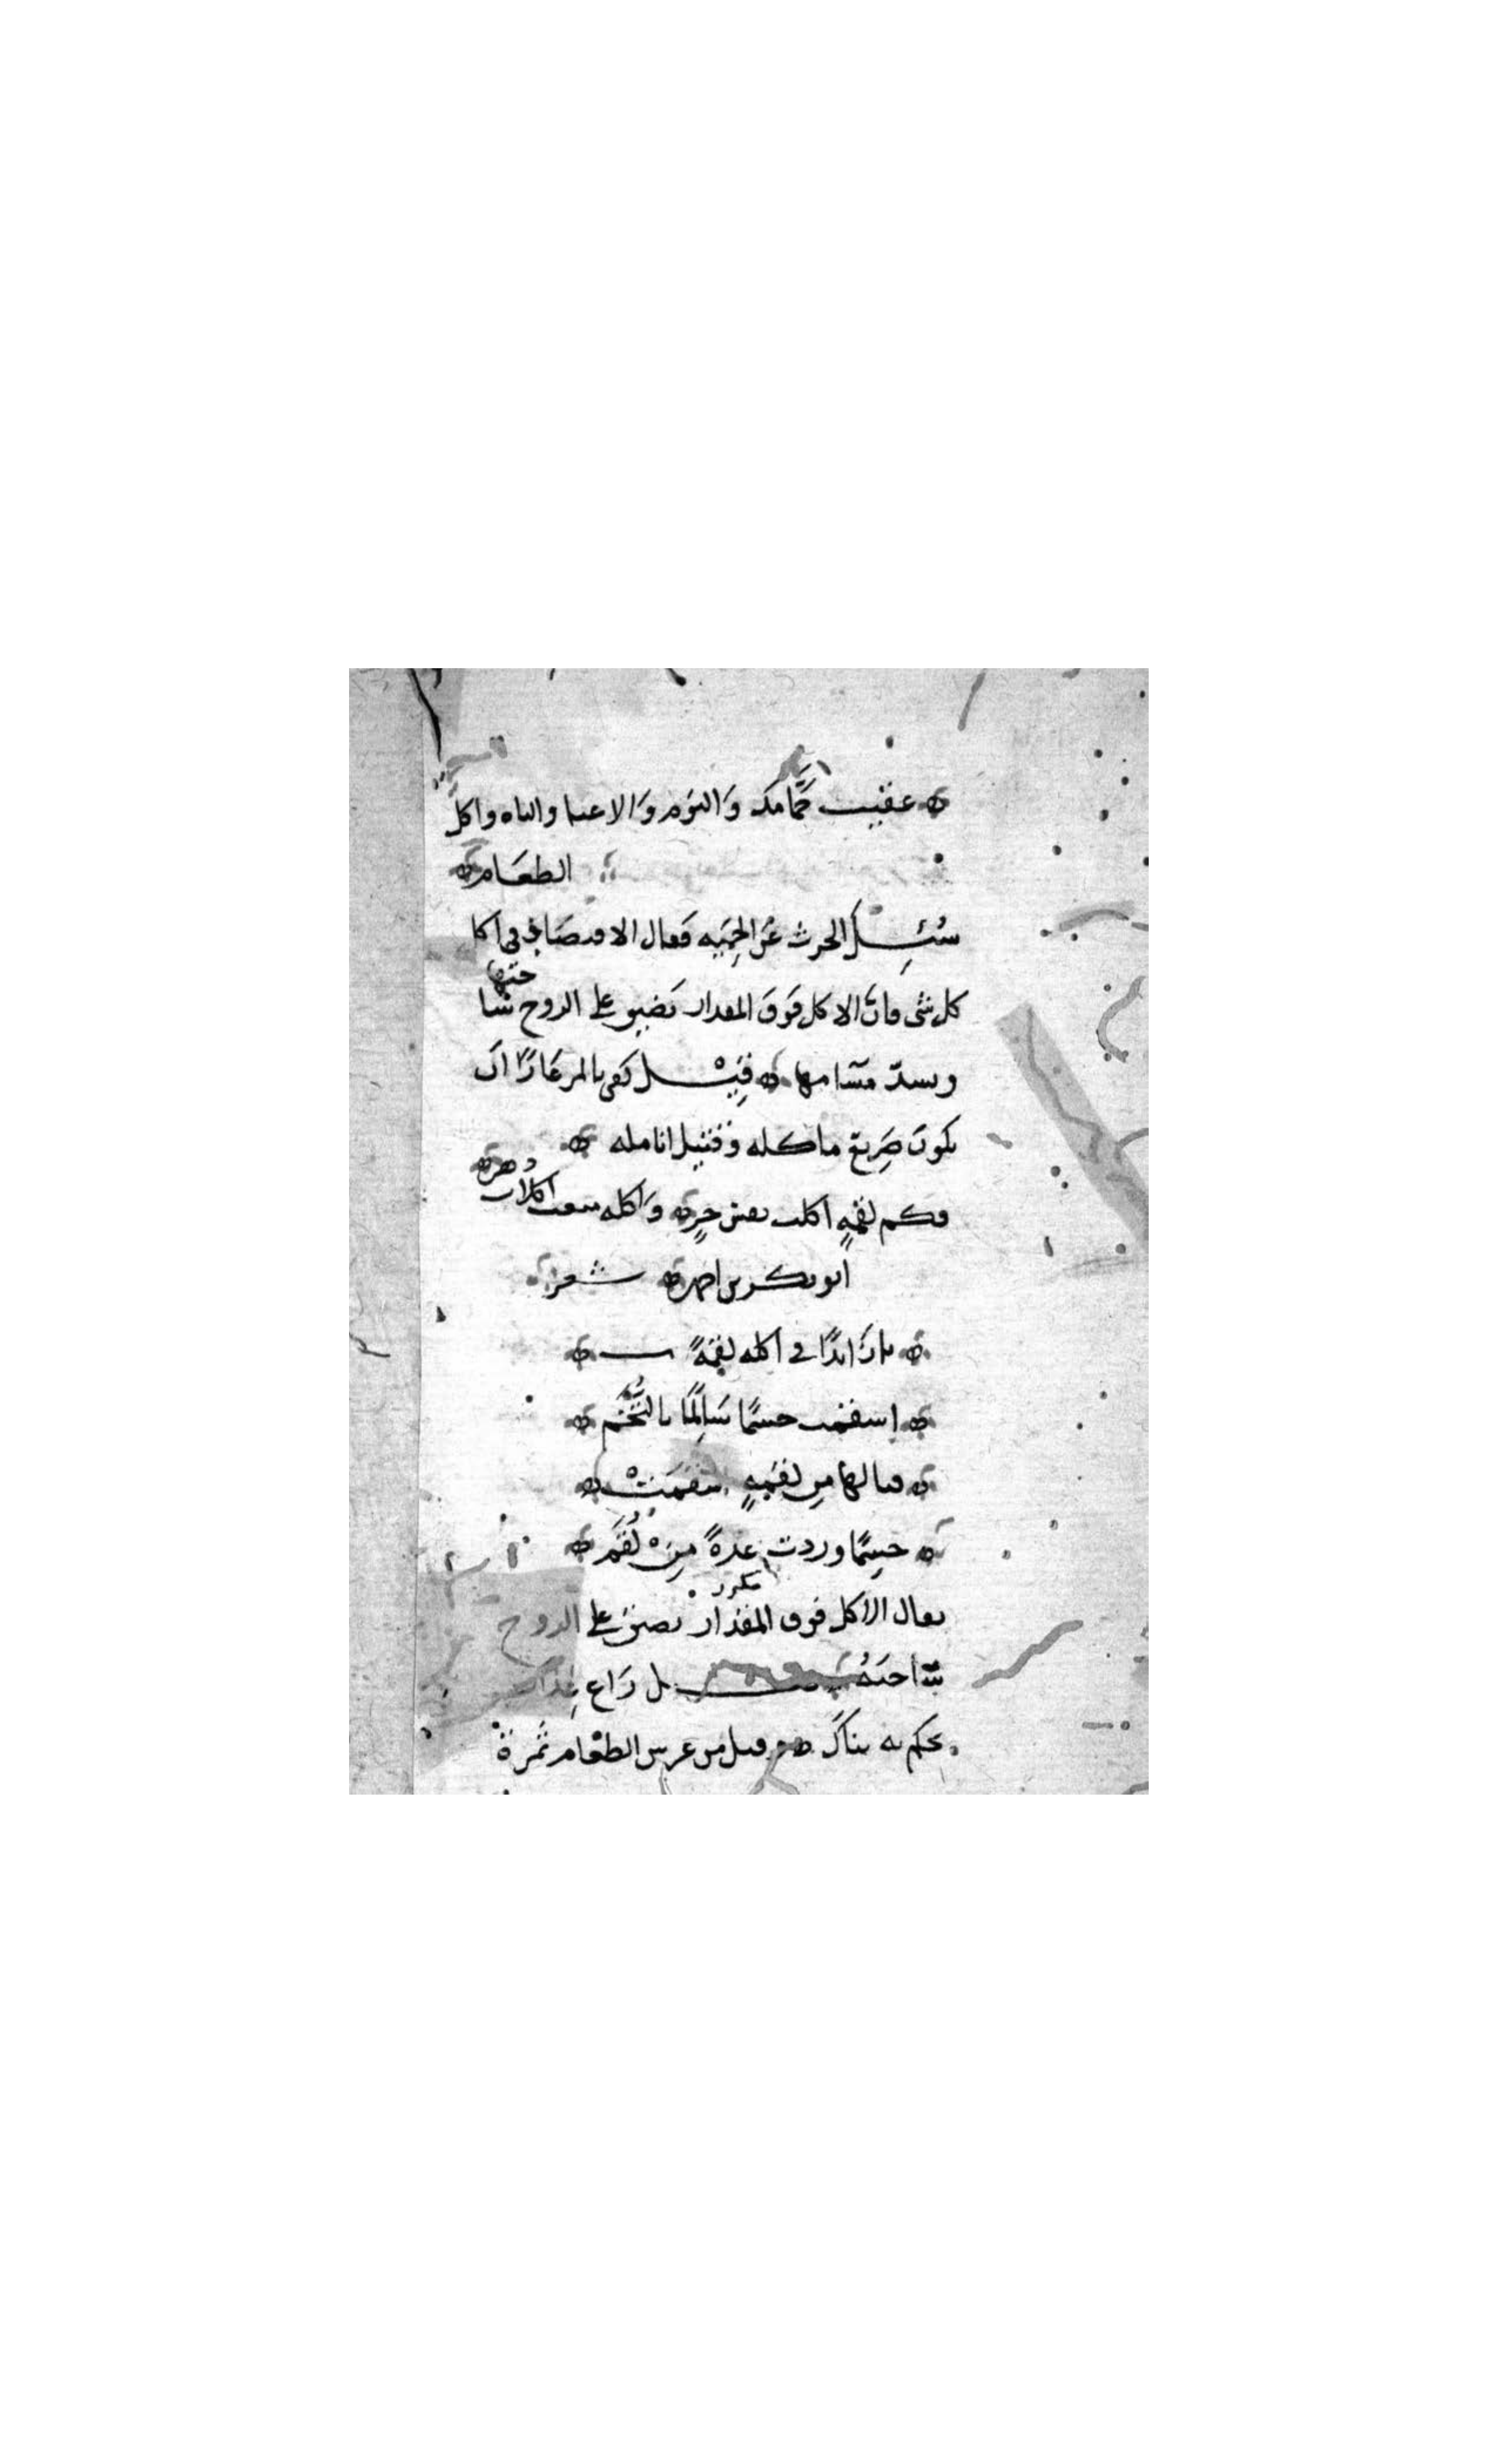 عقيب حمّامك وَالنوم وَالاعيا والباه واكل
الطعَام
سُئِل الحرث عَن الحِميَه فقال الاقتصاد في اكل
كل شى فانّ الاكل فوَق المقدار يَضيق على الروح سَاحتها
ويسدّ مسّامها قِيْل كفى بالمر عَارًا انَ
يكونَ صَرِيع ماكله وَقتيل انامله
وكم لقمةٍ اكلت نفس حرٍ وَاكله منعت اكلات دهر
ابو بكر بن احمد شعر
يا زَائدًا في اكله لقمةً
اسقمت جسمًا سَالِمًا بالتُّخَم
فيا لها مِن لقمَةٍ اسقمَتْ
جسِمًا وردت عدةً مِنْ لُقَم
مكرر
يقال الاكل فوق المقدار يضيق على الروح
سَاحته
يحكم به بناك وقيل من غرس الطعَام ثمَرةْ